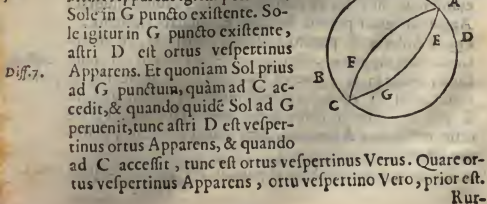 Sole in G puncto existente. So-
le igitur in G puncto existente,
astri D est ortus vespertinus
Diff.7. Apparens. Et quoniam Sol prius
ad G punctum, quàm ad C ac-
cedit, & quando quidẽ Sol ad G
peruenit, tunc astri D est vesper-
tinus ortus Apparens, & quando
ad C accessit, tunc est ortus vespertinus Verus. Quare or-
tus vespertinus Apparens, ortu vespertino Vero, prior est.
Rur-
A
E D
F
B
G
C